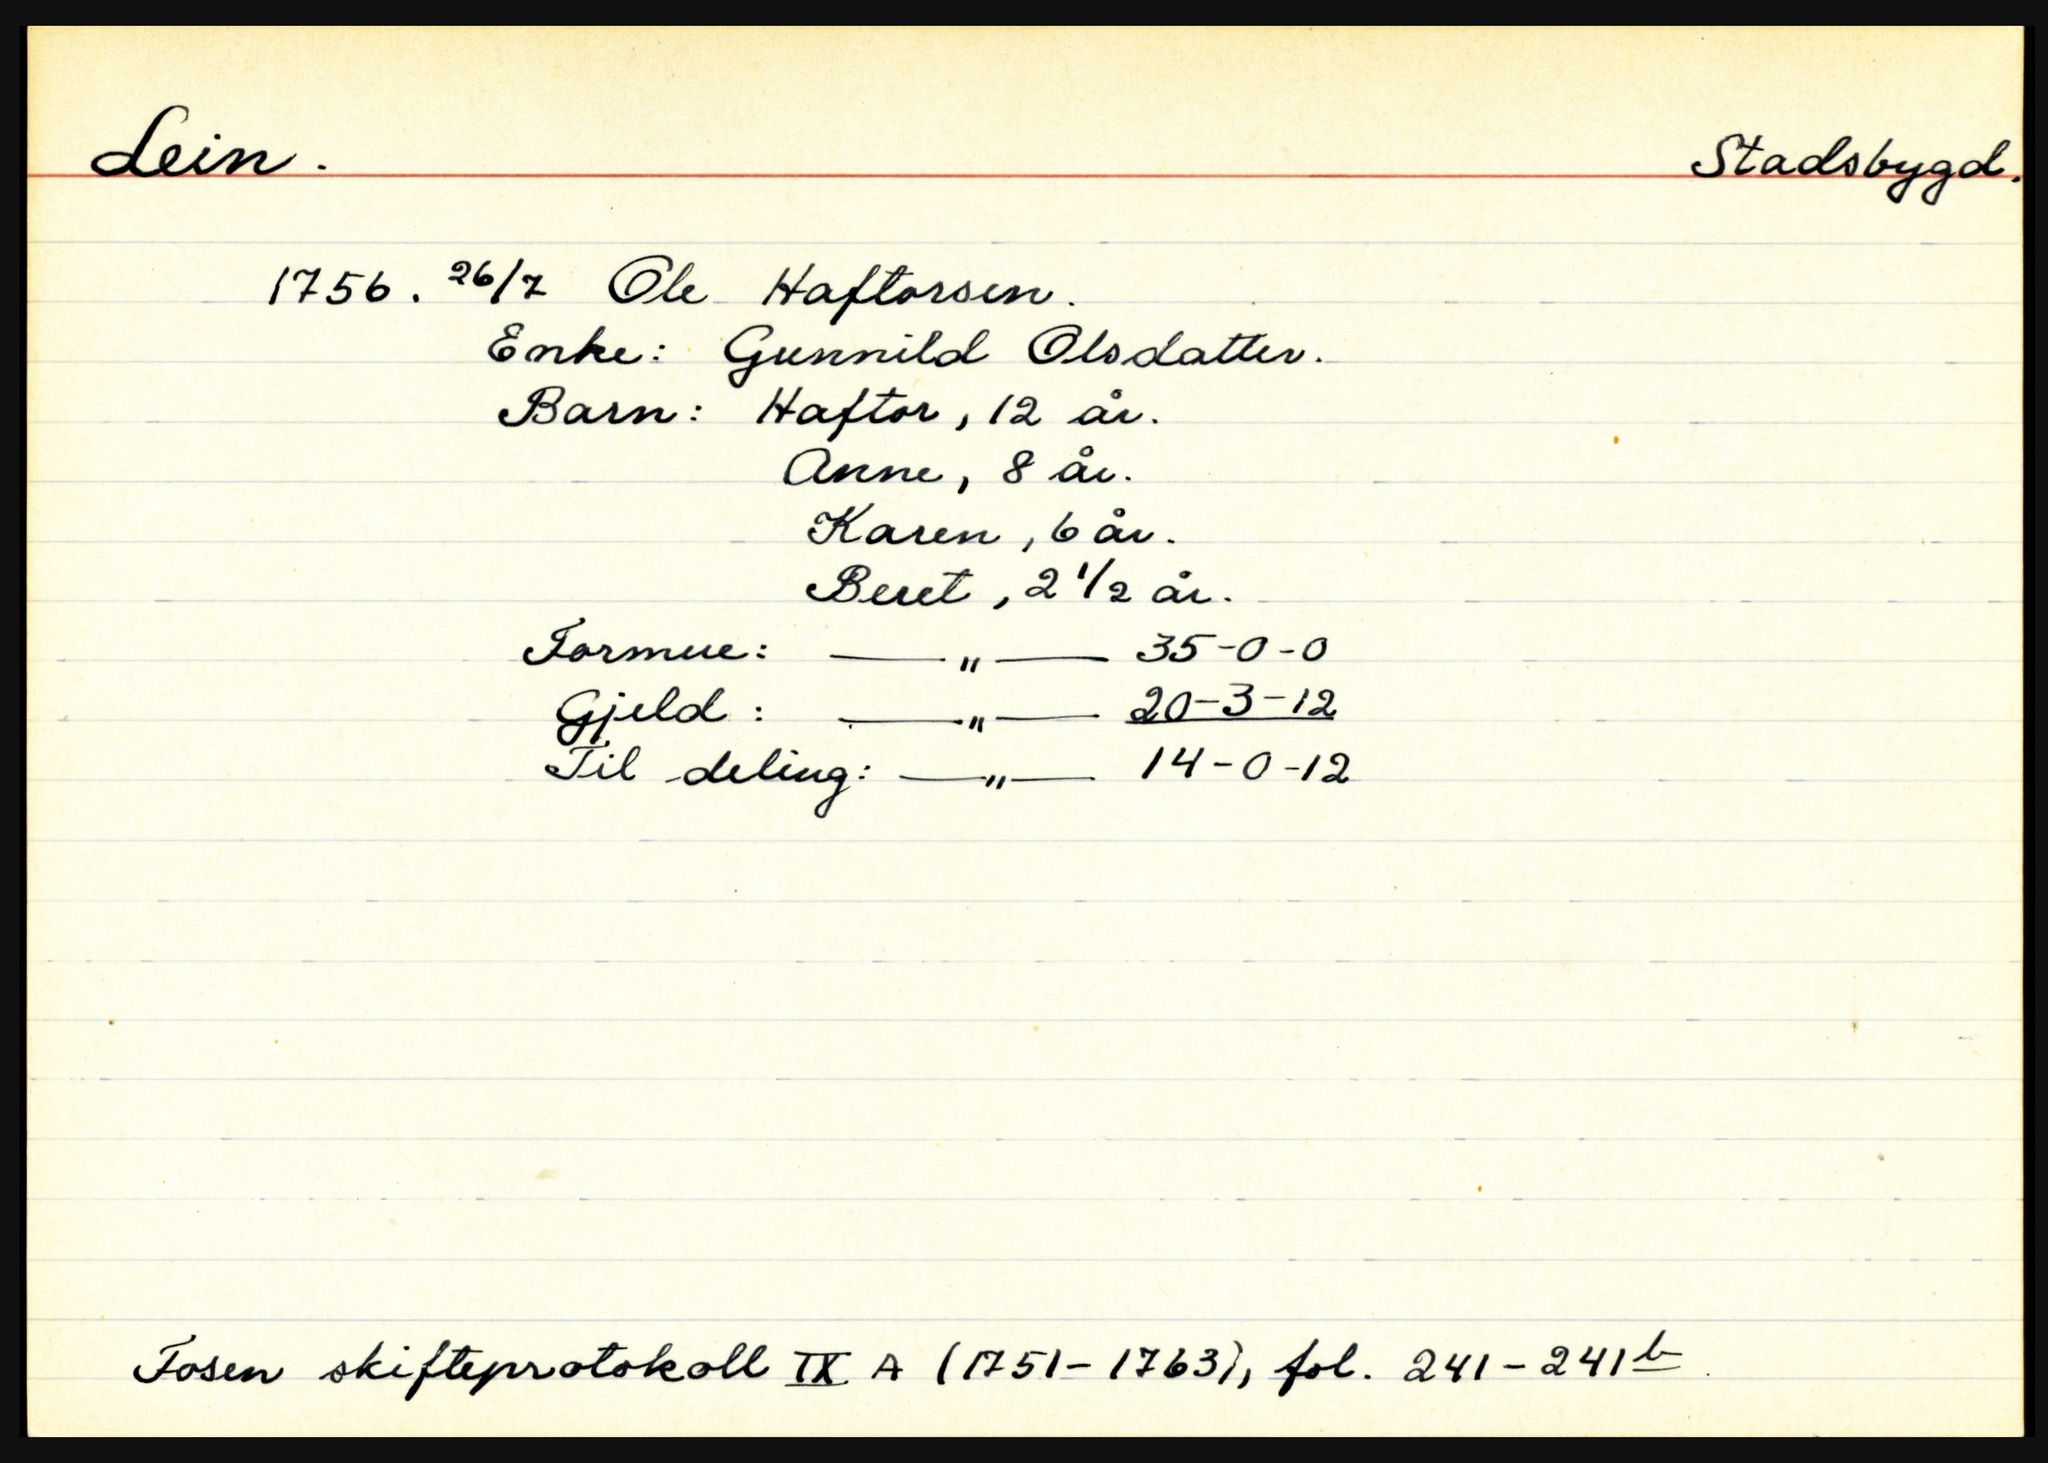 Lein. Stadsbygd.
1756. 26/7 Ole Haftorsen.
Enke: Gunnild Olsdatter.
Barn: Haftor, 12 år.
Anne, 8 år.
Karen, 6 år.
Beret, 2 1/2 år.
Formue: —— " —— 35-0-0
Gjeld: —— " —— 20-3-12
Til deling: —— " —— 14-0-12
Fosen skifteprotokoll IX A (1751-1763), fol. 241-241b